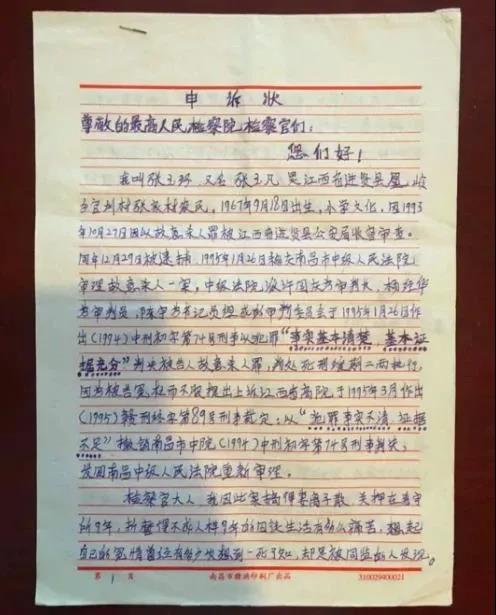 申诉状
尊敬的最高人民检察院检察官们：
您们好！
我叫张玉环 又名 张玉凡 是江西省进贤县凰岭
乡官圳村张家村农民，1967年9月18日出生，小学文化，因1993
年10月27日因以故意杀人罪被江西省进贤县公安局收容审查。
同年12月29日被逮捕，1995年1月26日经南昌市中级人民法院
审理故意杀人一案，中级法院 许国 为审判长，杨经华
为审判员， 为书记员组成 审判委员会于1995年1月26日作
出(1994)中刑初字第74号刑事以犯罪“事实基本清楚，基本证
据充分”判决被告人故意杀人罪，判处死刑缓期二年执行，
因为被告冤枉而不服提出上诉江西省高院于1995年3月作出
(1995)赣刑终字第89号刑事裁定：以“犯罪事实不清 证据
不足”撤销南昌市中院(1994)中刑初字第74号刑事判决；
发回南昌中级人民法院重新审理。
检察官大人，我因此案搞得妻离子散，关押在看守
所9年，折磨得不成人样9年的囚徒生活有多么痛苦，想起
自己的冤情曾经有多少次想到一死了知，却是被同监的人发现。
第 1 页 南昌市赣滨印刷厂出品 310029400021